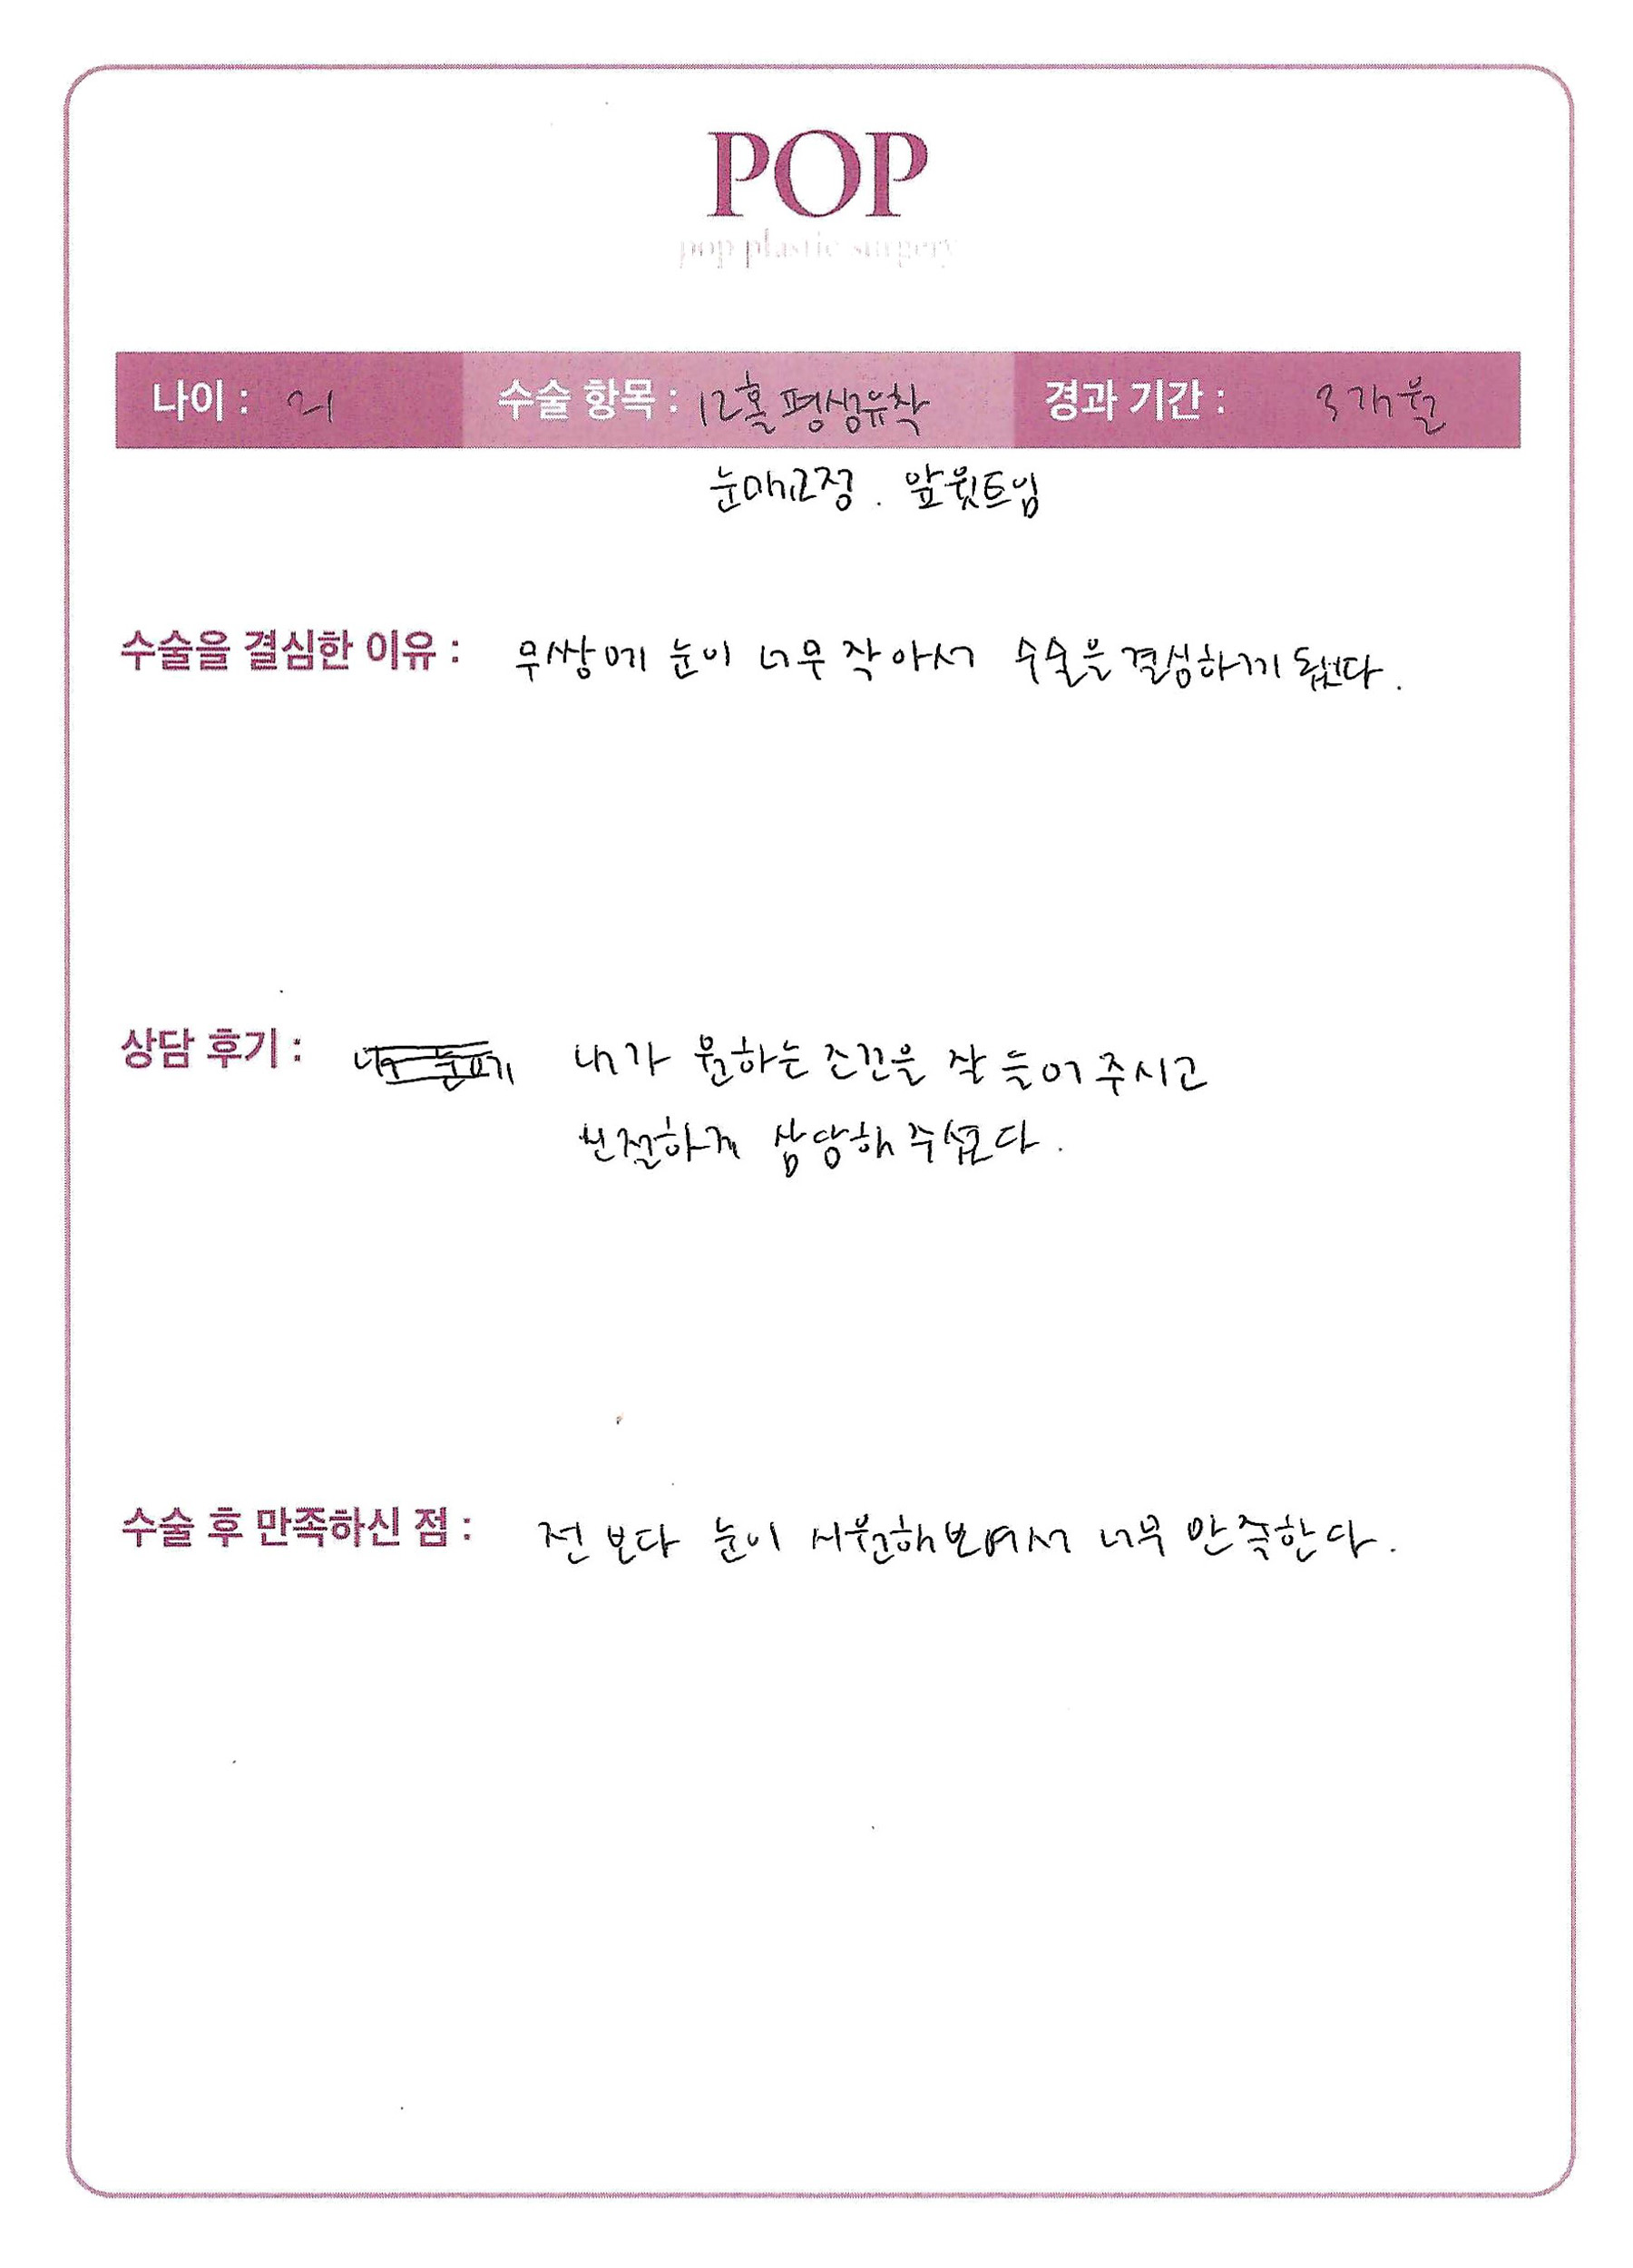 POP
pop plastic surgery
나이 : 21 수술 항목 : 12홀 평생유착 경과 기간 : 3개월
눈매교정. 앞윗트임
수술을 결심한 이유 : 무쌍에 눈이 너무 작아서 수술을 결심하게 됐다.
상담 후기 : 내가 원하는 조건을 잘 들어주시고
친절하게 상담해주셨다.
수술 후 만족하신 점 : 전보다 눈이 시원해보여서 너무 만족한다.